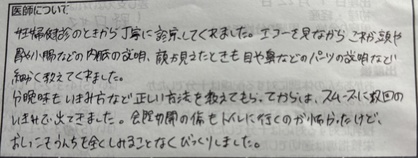 医師について
妊婦健診のときから丁寧に診察してくれました。エコーを見ながら これが頭や
胃や小腸などの内臓の説明、顔が見えたときも目や鼻などのパーツの説明など
細かく教えてくれました。
分娩時もいきみ方など正しい方法を教えてもらってからは、スムーズに数回の
いきみで出てきました。会陰切開の傷もトイレに行くのが怖かったけど、
おしっこもうんちも全くしみることなくびっくりしました。